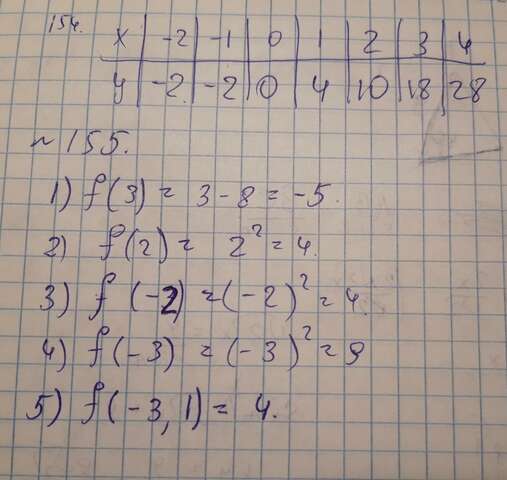 154. x | -2 | -1 | 0 | 1 | 2 | 3 | 4
y | -2 | -2 | 0 | 4 | 10 | 18 | 28
~ 155.
1) f(3) = 3 - 8 = -5.
2) f(2) = 2² = 4.
3) f(-2) = (-2)² = 4.
4) f(-3) = (-3)² = 9
5) f(-3,1) = 4.